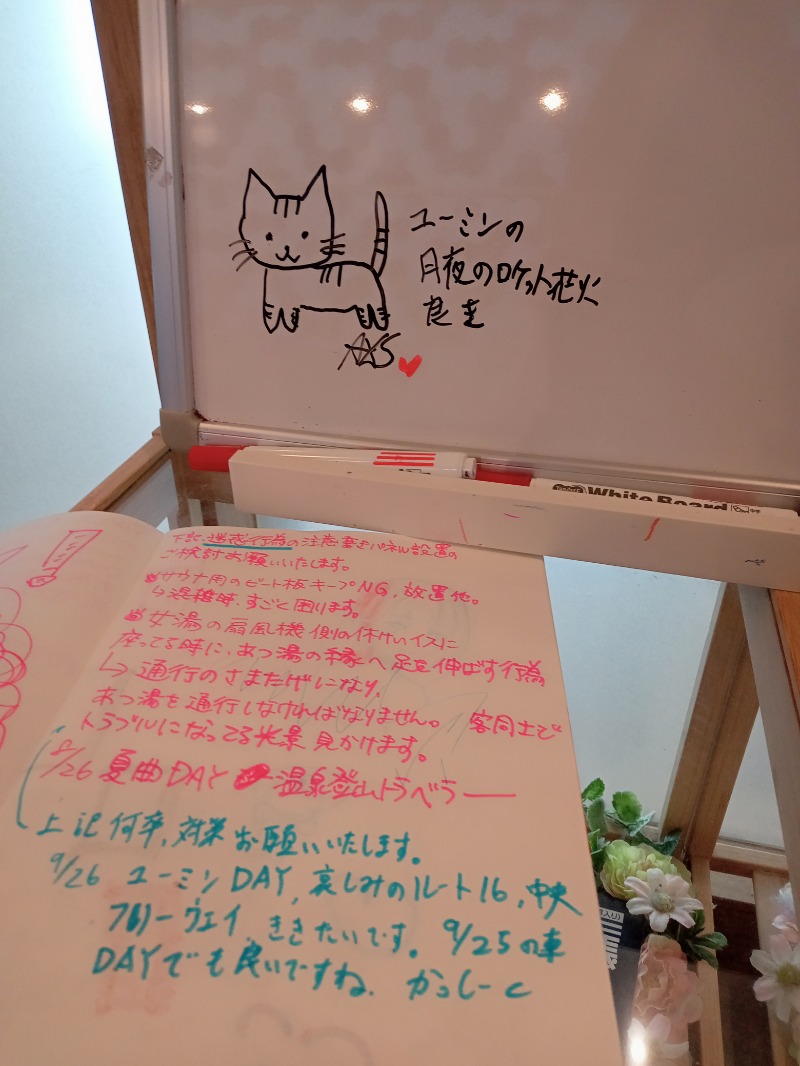 ユーミンの
月夜のロケット花火
良き
White Board
下記、迷惑行為の注意書きパネル設置の
ご検討お願いいたします。
サウナ用のビート板キープNG、放置他。
↳混雑時、すごく困ります。
女湯の扇風機側の休けいイスに
座ってる時に、あつ湯の縁へ足を伸ばす行為
↳通行のさまたげになり、
あつ湯を通行しなければなりません。 客同士で
トラブルになってる光景見かけます。
8/26 夏曲DAY 温泉登山トラベラー
上記何卒、対策お願いいたします。
9/26 ユーミンDAY、哀しみのルート16、中央
フリーウェイ、ききたいです。9/25の車
DAYでも良いですね、かっしーC